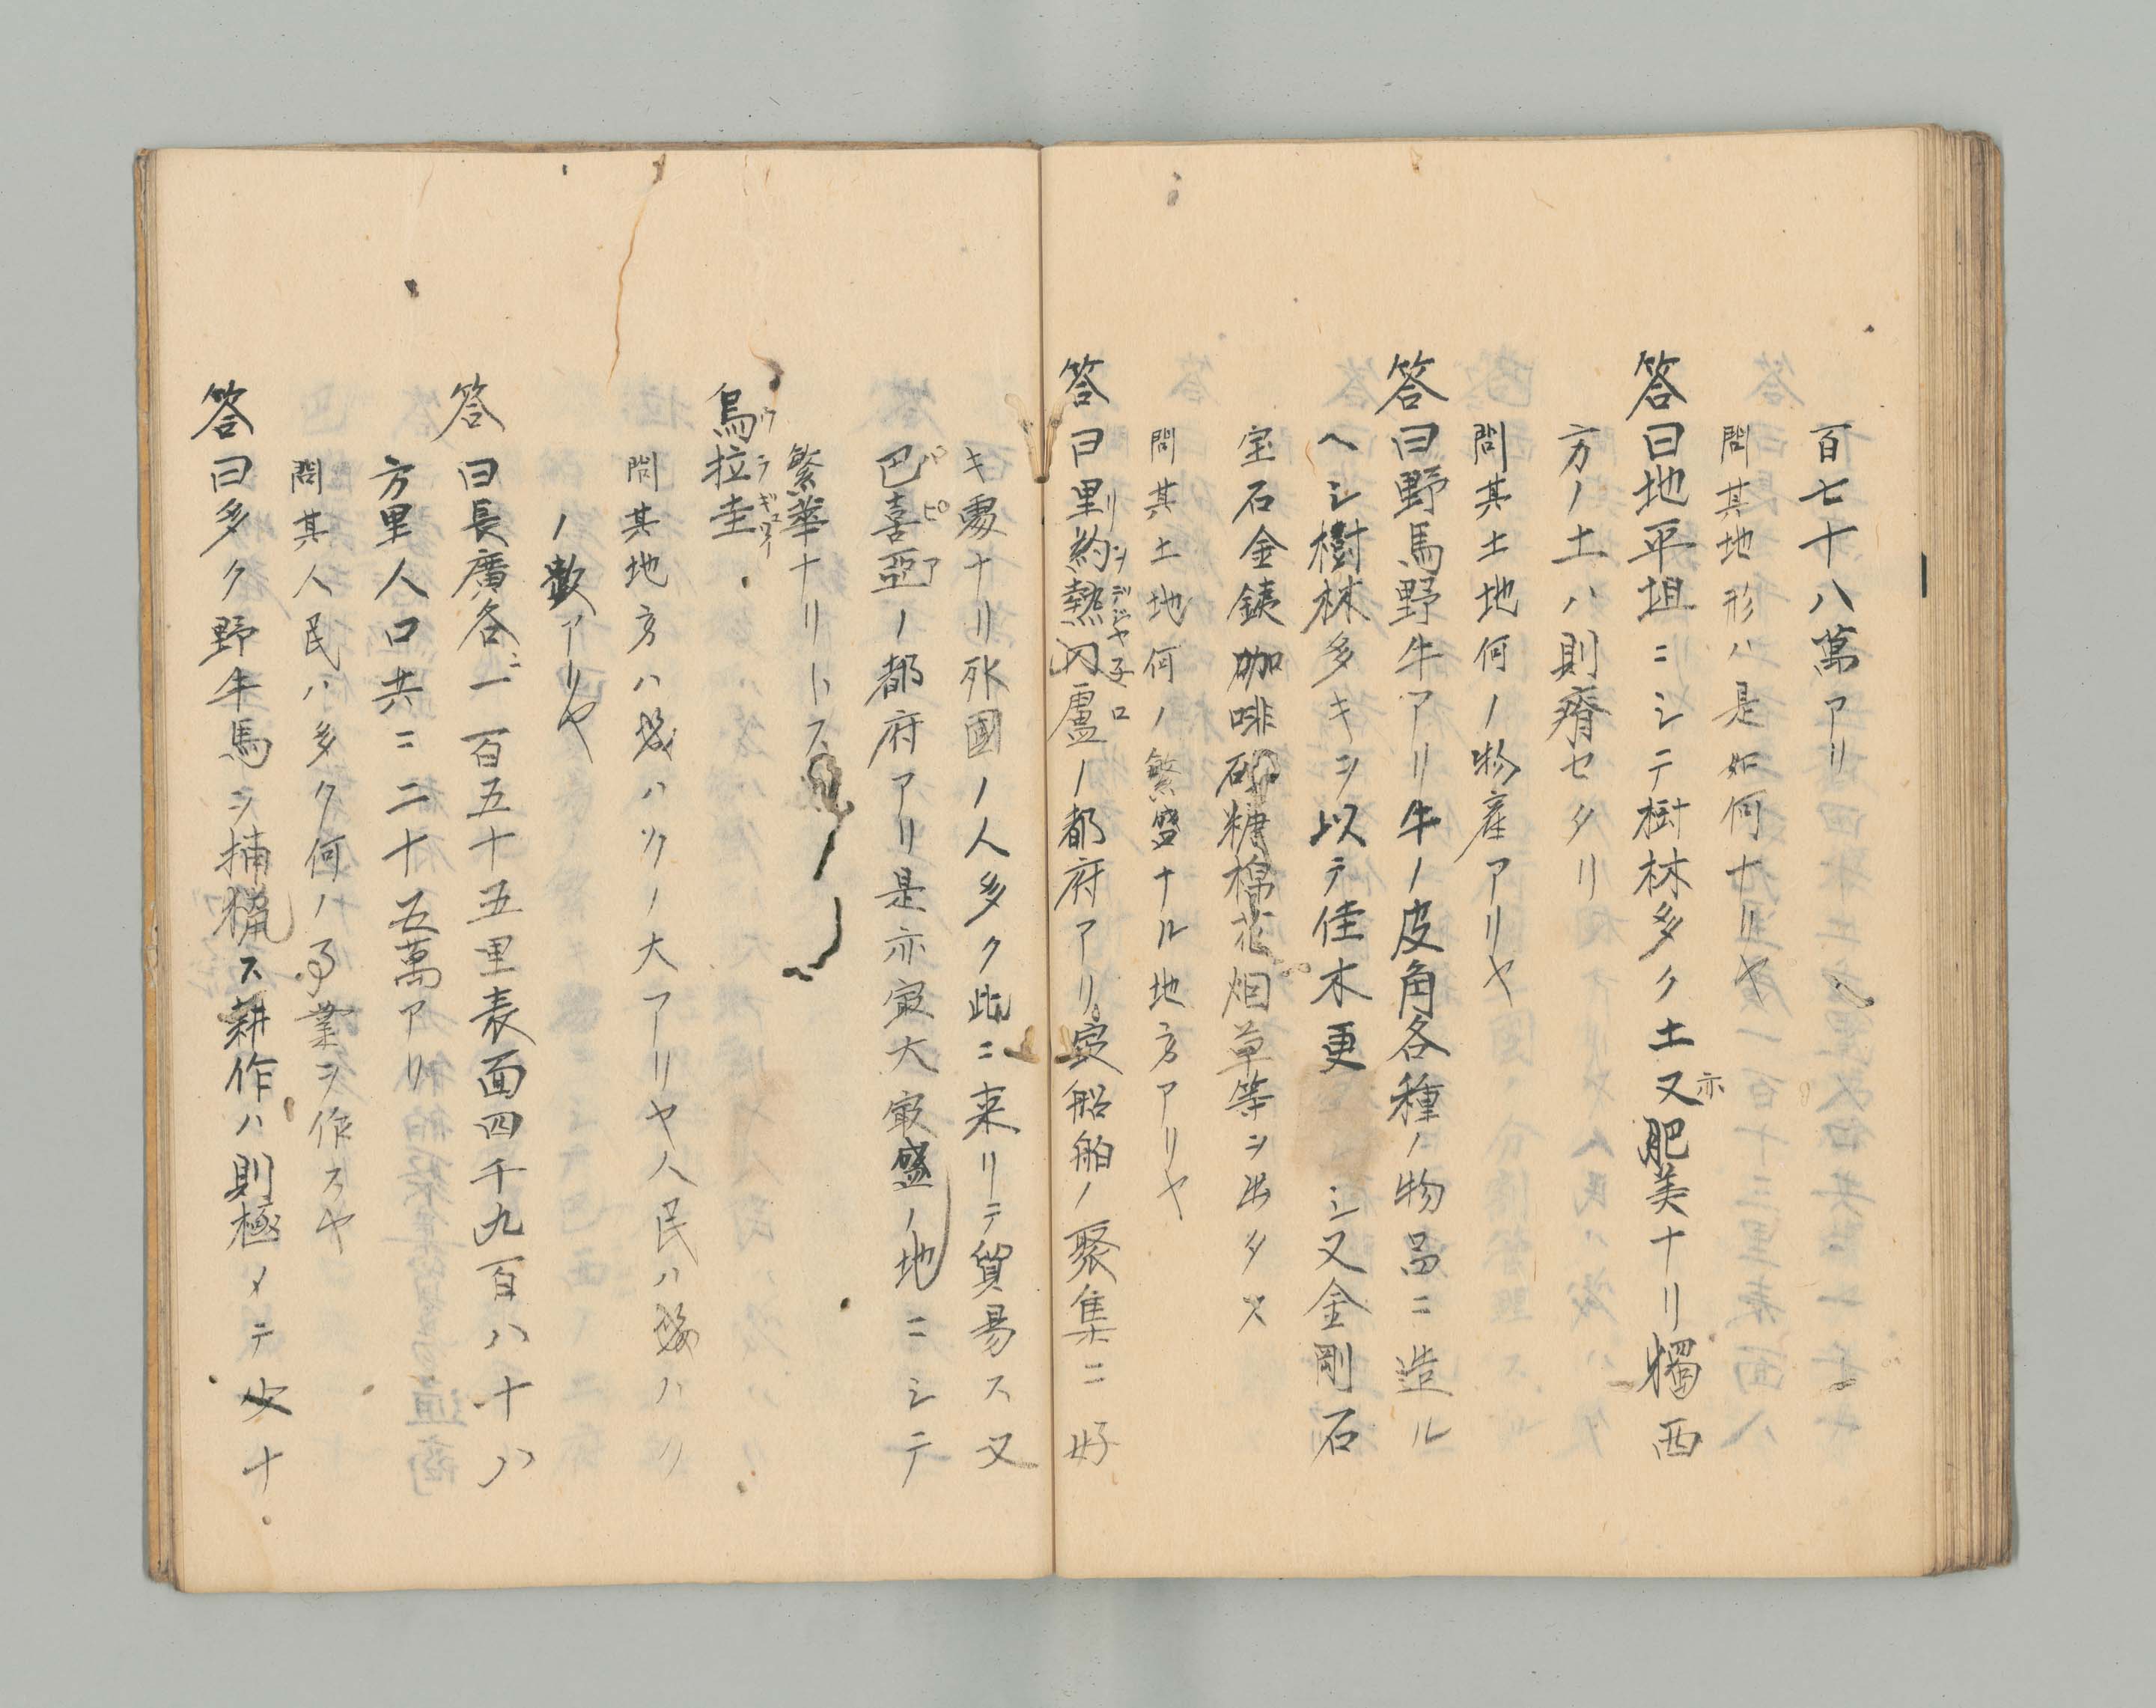 百七十八萬アリ
問其地形ハ是如何ナリヤ
答曰地平坦ニシテ樹林多ク土又亦肥美ナリ獨西
方ノ土ハ則瘠セタリ
問其土地何ノ物産アリヤ
答曰野馬野牛アリ牛ノ皮角各種ノ物品ニ造ル
ヘシ樹林多キヲ以テ佳木更シ又金剛石
宝石金銕咖啡砂糖棉花烟草等ヲ出タス
問其土地何ノ繁盛ナル地方アリヤ
答曰里約熱内盧ノ都府アリ最船舶ノ聚集ニ好
キ處ナリ外國ノ人多ク此ニ来リテ貿易ス又
巴喜亞ノ都府アリ是亦最大最盛ノ地ニシテ
繁華ナリトス
烏拉圭
問其地方ハ幾ハクノ大アリヤ人民ハ幾ハク
ノ數アリヤ
答曰長廣各ニ一百五十五里表面四千九百八十八
方里人口共ニ二十五萬アリ
問其人民ハ多ク何ノ事業ヲ作スヤ
答曰多ク野牛馬ヲ捕猟ス耕作ハ則極メテ少ナ